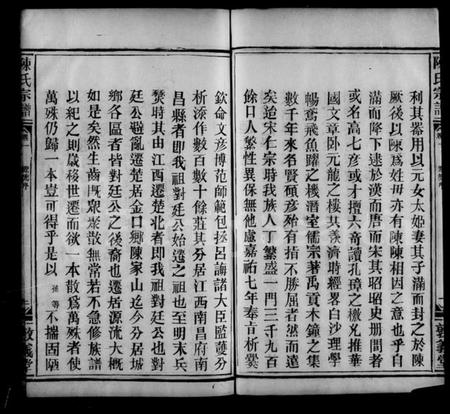 陳氏宗譜
利其器用以元女太姬妻其子滿而封之於陳
厥後以陳爲姓毋亦有陳陳相因之意也乎自
滿而降下逮於漢而唐而宋其昭昭史册間者
或名高七彥或才擅六奇讀孔璋之檄允推華
國文章臥元龍之樓共羨濟時經畧白沙理學
暢鳶飛魚躍之機潛室儒宗著禹貢木鐘之集
數千年來名賢碩彥殆有指不勝屈者然而遠
矣迨宋仁宗時我族人丁繁盛一門三千九百
餘口人繁性異係無他慮嘉祐七年奉旨析爨
敦義堂
欽命文彥博范師範包拯呂誨諸大臣監護分
析添作數百數十餘莊其分居江西南昌府南
昌縣者即我祖對廷公始遷之祖也至明末兵
燹時其由江西遷楚北者即我祖對廷公也對
廷公避亂遷楚居金口鄉陳家山迄今分居城
鄉各區者皆對廷公之後裔也遷居源流大概
如是矣然生齒旣眾聚散無常若不急修族譜
以紀之則歲移世遷而欲一本散爲萬殊者使
萬殊仍歸一本豈可得乎是以 等不揣固陋
陳氏宗譜
敦義堂